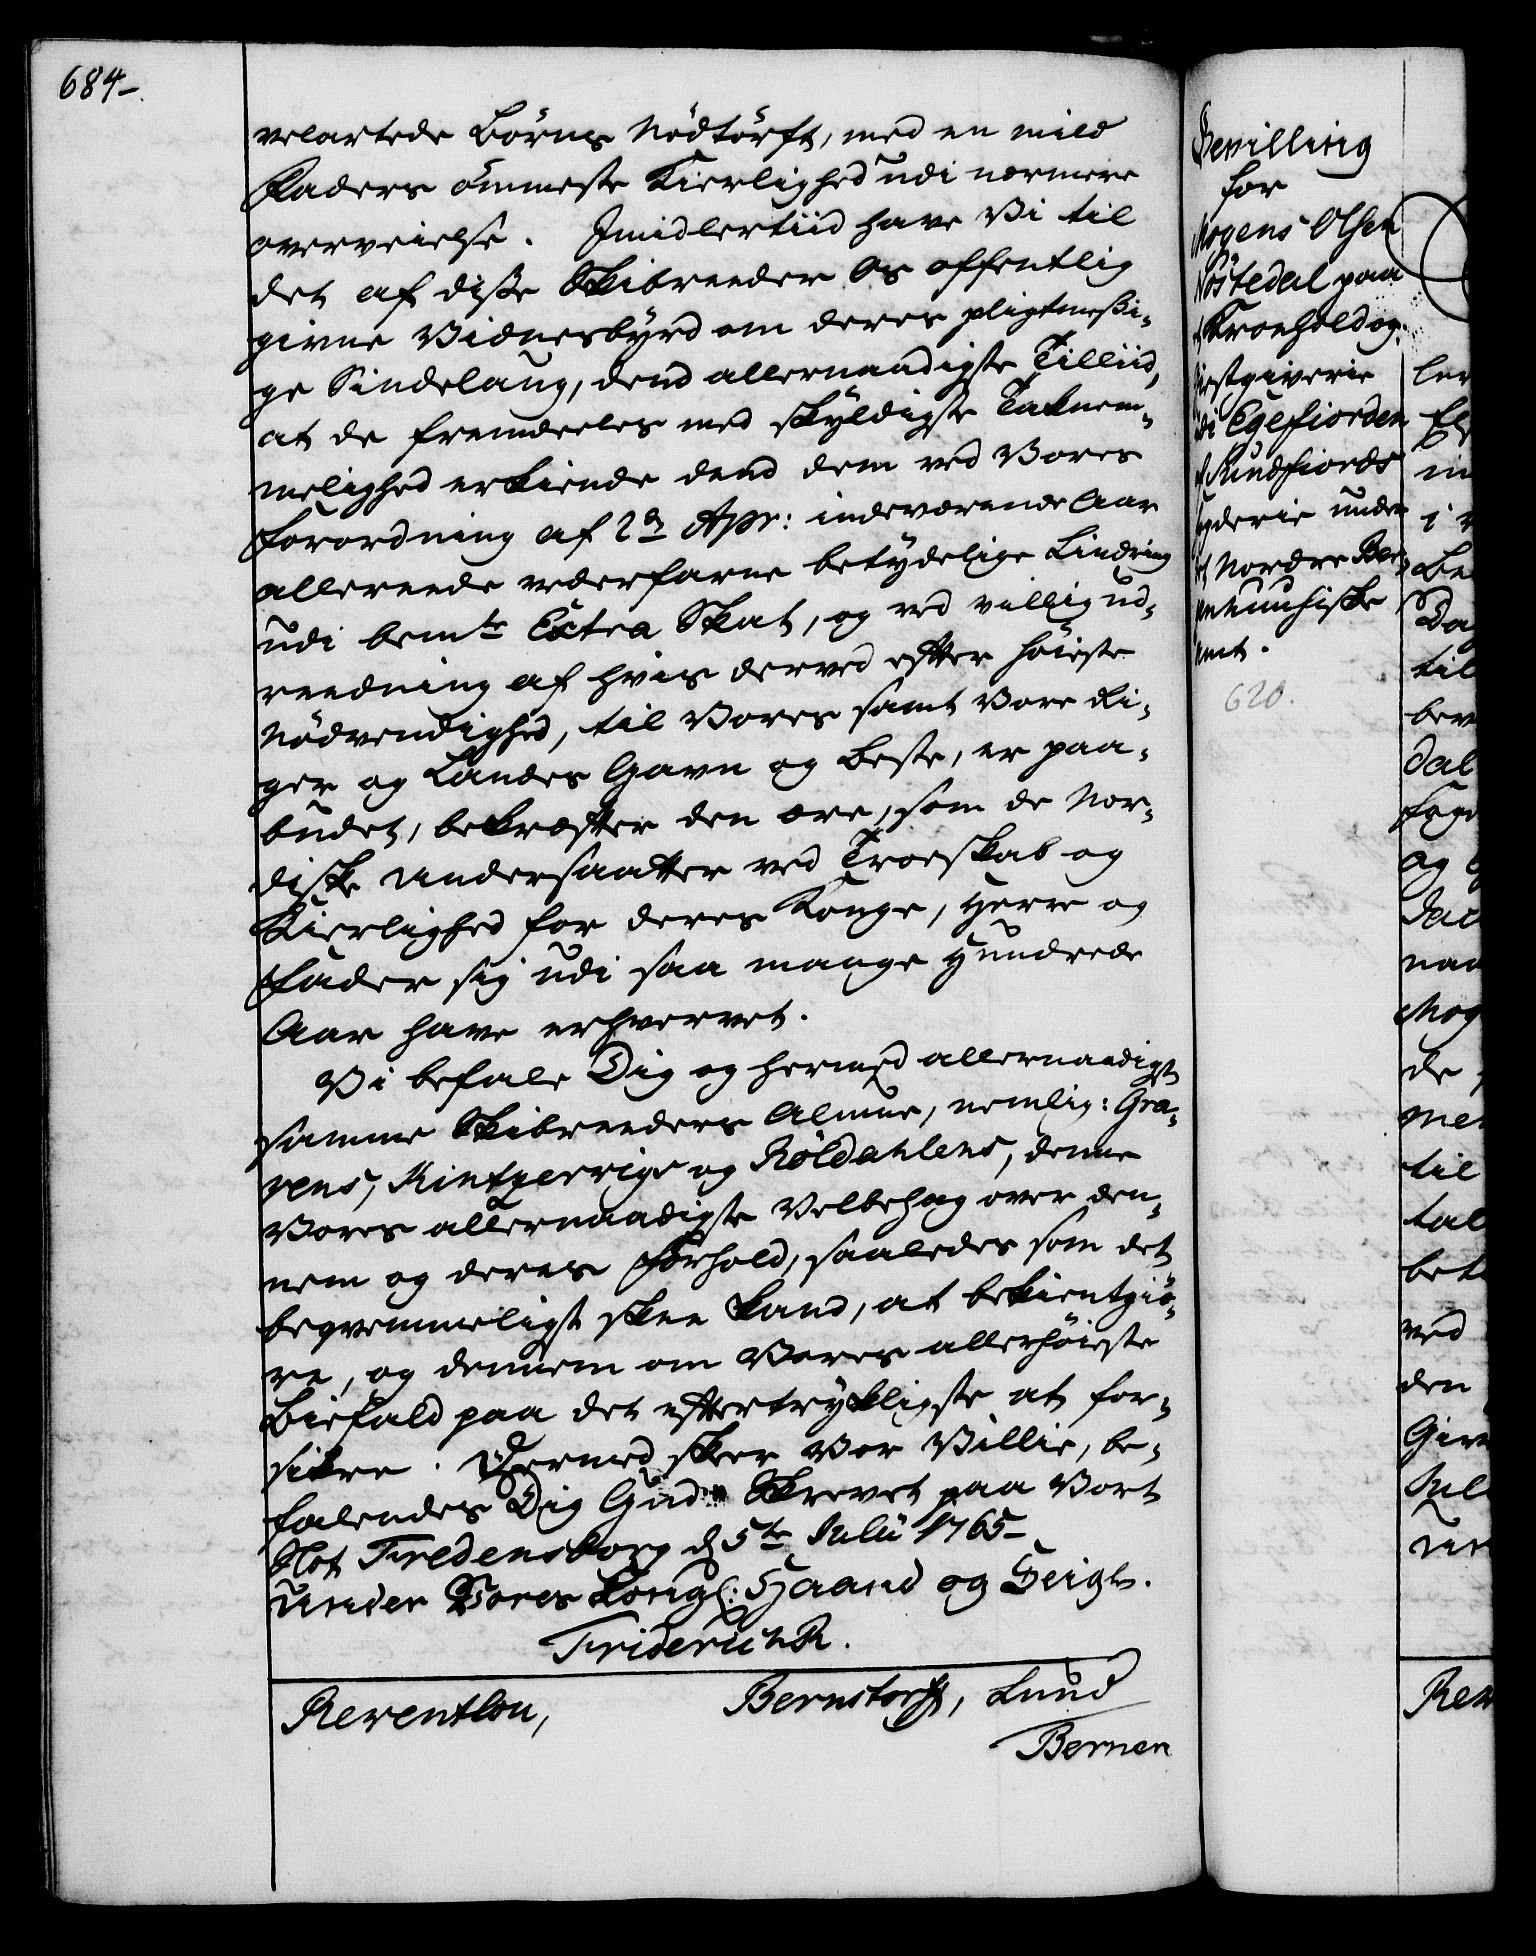 684-.
velartede Börns Nödtörft, med en mild
Faders ömmeste Kierlighed udi nærmere
overveielse. Imidlertiid have Vi til
det af disse Skibreeder Os offentlig
givne Vidnesbyrd om deres pligtmessi-
ge Sindelaug, dend allernaadigste Tilliid,
at de fremdeeles med skyldigste Taknem-
melighed erkiende dend dem ved Vores
Forordning af 2den Apr: indeværende Aar
allereede vederfarne betydelige Lindring
udi bemte Extra Skat, og ved villig ud-
reedning af hvis derved efter höieste
Nödvendighed, til Vores samt Vore Ri-
ger og Landes Gavn og Beste, er paa-
budet, bekræfter den ære, som de Nor-
diske Undersaatter ved Troeskab og
Kierlighed for deres Konge, Herre og
Fader sig udi saa mange Hundrede
Aar have erhvervet.
Vi befale Dig og hermed allernaadigst
samme Skibreeders Almue, nemlig: Gra-
vens, Kintzervigs og Röldahlens, denne
Vores allernaadigste Velbehag over den-
nem og deres Forhold, saaledes som det
beqvemmeligst skee kand, at bekientgiö-
re, og dennem om Vores allerhöieste
Biefald paa det eftertrykligste at for-
sikre. Dermed skeer Vor Villie, be-
falendes Dig Gud. Skrevet paa Vort
Slot Fredensborg d 5te Julii 1765-
Under Vores Kongl: Haand og Seigl.
Friderich R.
Reventlou, Bernstorff, Lund
Berner
Bevilling
for
Mogens Olsen
Nöstedal paa
et Kroehold og
Giestgiverie
udi Egefiorden
af Sundfiords
Fogderie under
det Nordre Ber-
genhuusiske
Amt.
620.